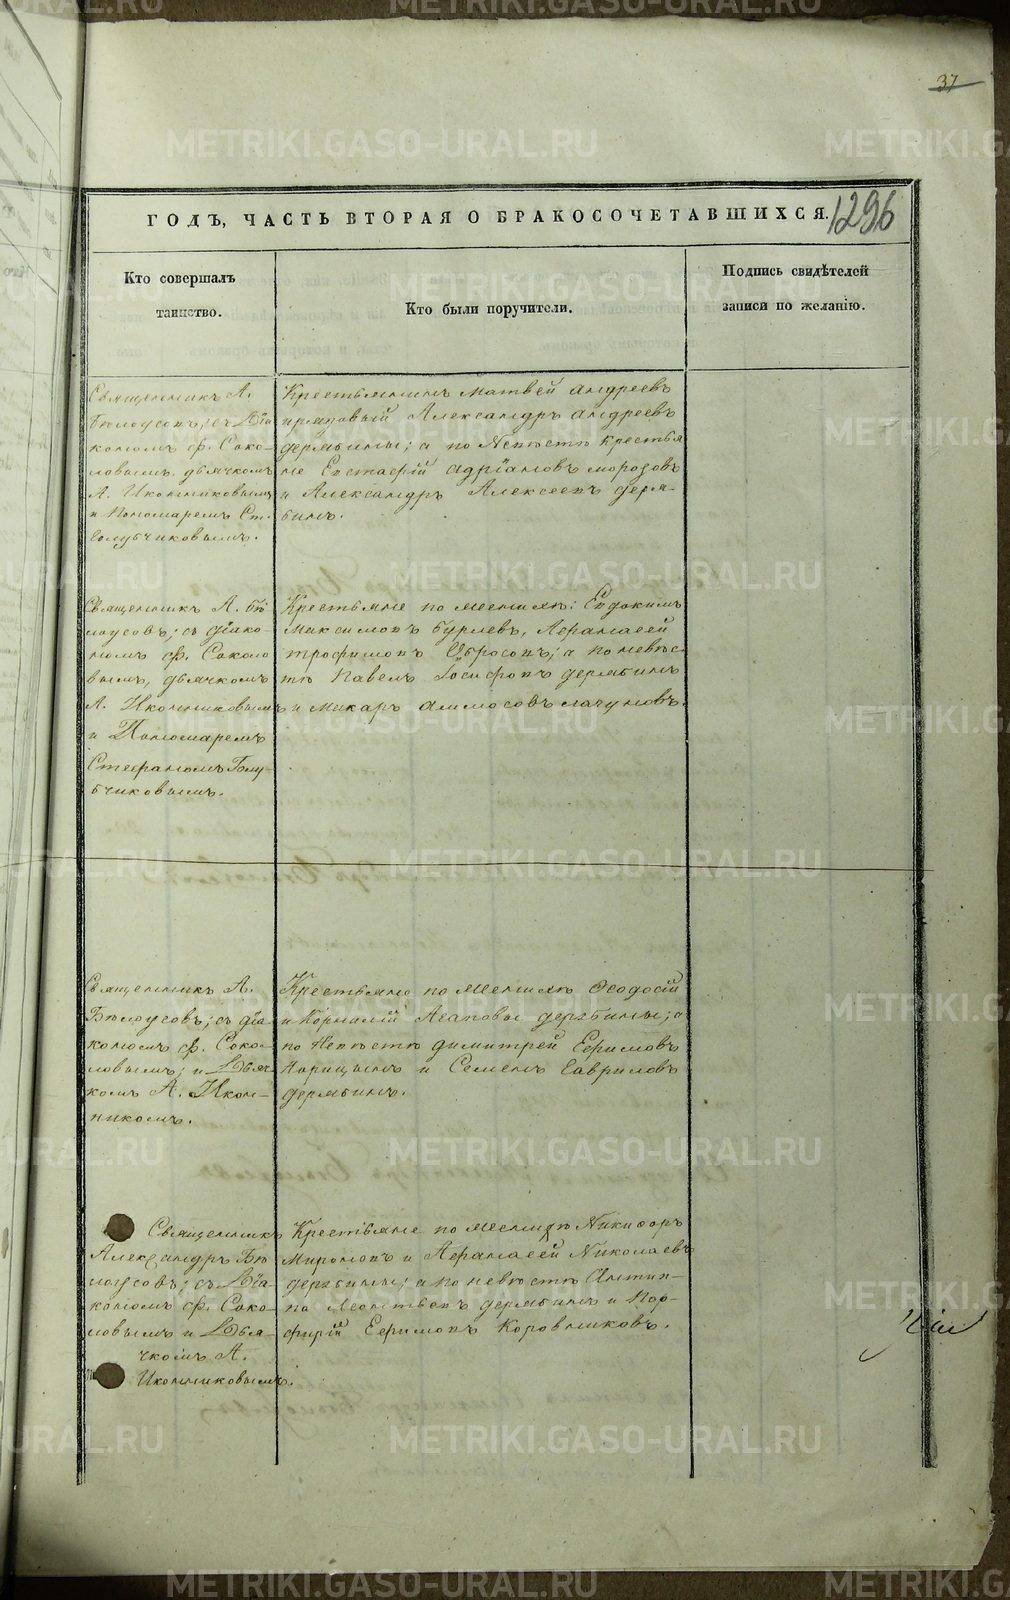 37
ГОДЪ, ЧАСТЬ ВТОРАЯ О БРАКОСОЧЕТАВШИХСЯ.
1296
Кто совершалъ
таинство.
Кто были поручители.
Подпись свидѣтелей
записи по желанію.
Священникъ А.
Бѣлоусовъ; съ Діа
кономъ Ф. Соко-
ловымъ, дьячкомъ
А. Иконниковымъ
и Пономаремъ Ст.
Голубчиковымъ.
Крестьянинъ Матвей Андреевъ
Александръ Андреевъ
дерябины; а по Невѣстѣ крестья
не Евстафій Адріановъ морозовъ
и Александръ Алексеевъ деря-
бинъ.
Священникъ А. Бѣ
лоусовъ; съ діако-
номъ Ф. Соколо
вымъ, дьячкомъ
А. Иконниковымъ
и Пономаремъ
Стефаномъ Голу-
бчиковымъ.
Крестьяне по женихѣ: Евдокимъ
Максимовъ Бурлевъ, Афанасей
трофимовъ Обросовъ; а по невѣс-
тѣ Павелъ Іосифовъ дерябинъ
и Макаръ Аммосовъ мачуновъ.
Священникъ А.
Бѣлоусовъ; съ діа-
кономъ Ф. Соко-
ловымъ; и Дьяч
комъ А. Икон-
никомъ.
Крестьяне по женихѣ Ѳеодосій
и Корнилій Агаповы дерябины; а
по Невѣстѣ димитрей Ефимовъ
Нарицынъ и Семенъ Гавриловъ
дерябинъ.
Священникъ
Александръ Бѣ
лоусовъ; съ Діа-
кономъ Ф. Соко-
ловымъ и Дья-
чкомъ А.
Иконниковымъ.
Крестьяне по женихѣ Никифоръ
Мироновъ и Афанасей Николаевъ
дерябины; а по невѣстѣ Антип-
па Леонтьевъ дерябинъ и Пор-
фирій Ефимовъ Коровниковъ.
METRIKI.GASO-URAL.RU